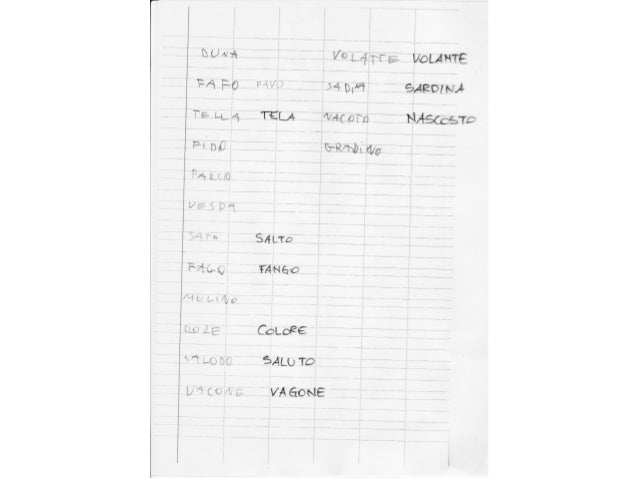 DUNA VOLATTE VOLANTE
FAFO FAVO SADINA SARDINA
TELLA TELA NACOTO NASCOSTO
FIDO GRADINO
PARCO
VESPA
SATO SALTO
FAGO FANGO
MULINO
CLORE COLORE
SALODO SALUTO
VACONE VAGONE